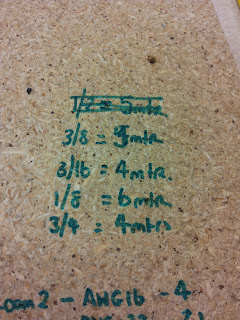 1/2 = 5mtr
3/8 = 5mtr
3/16 = 4mtr.
1/8 = 6mtr
3/4 = 4mtrs
2 - AWG16 - 4